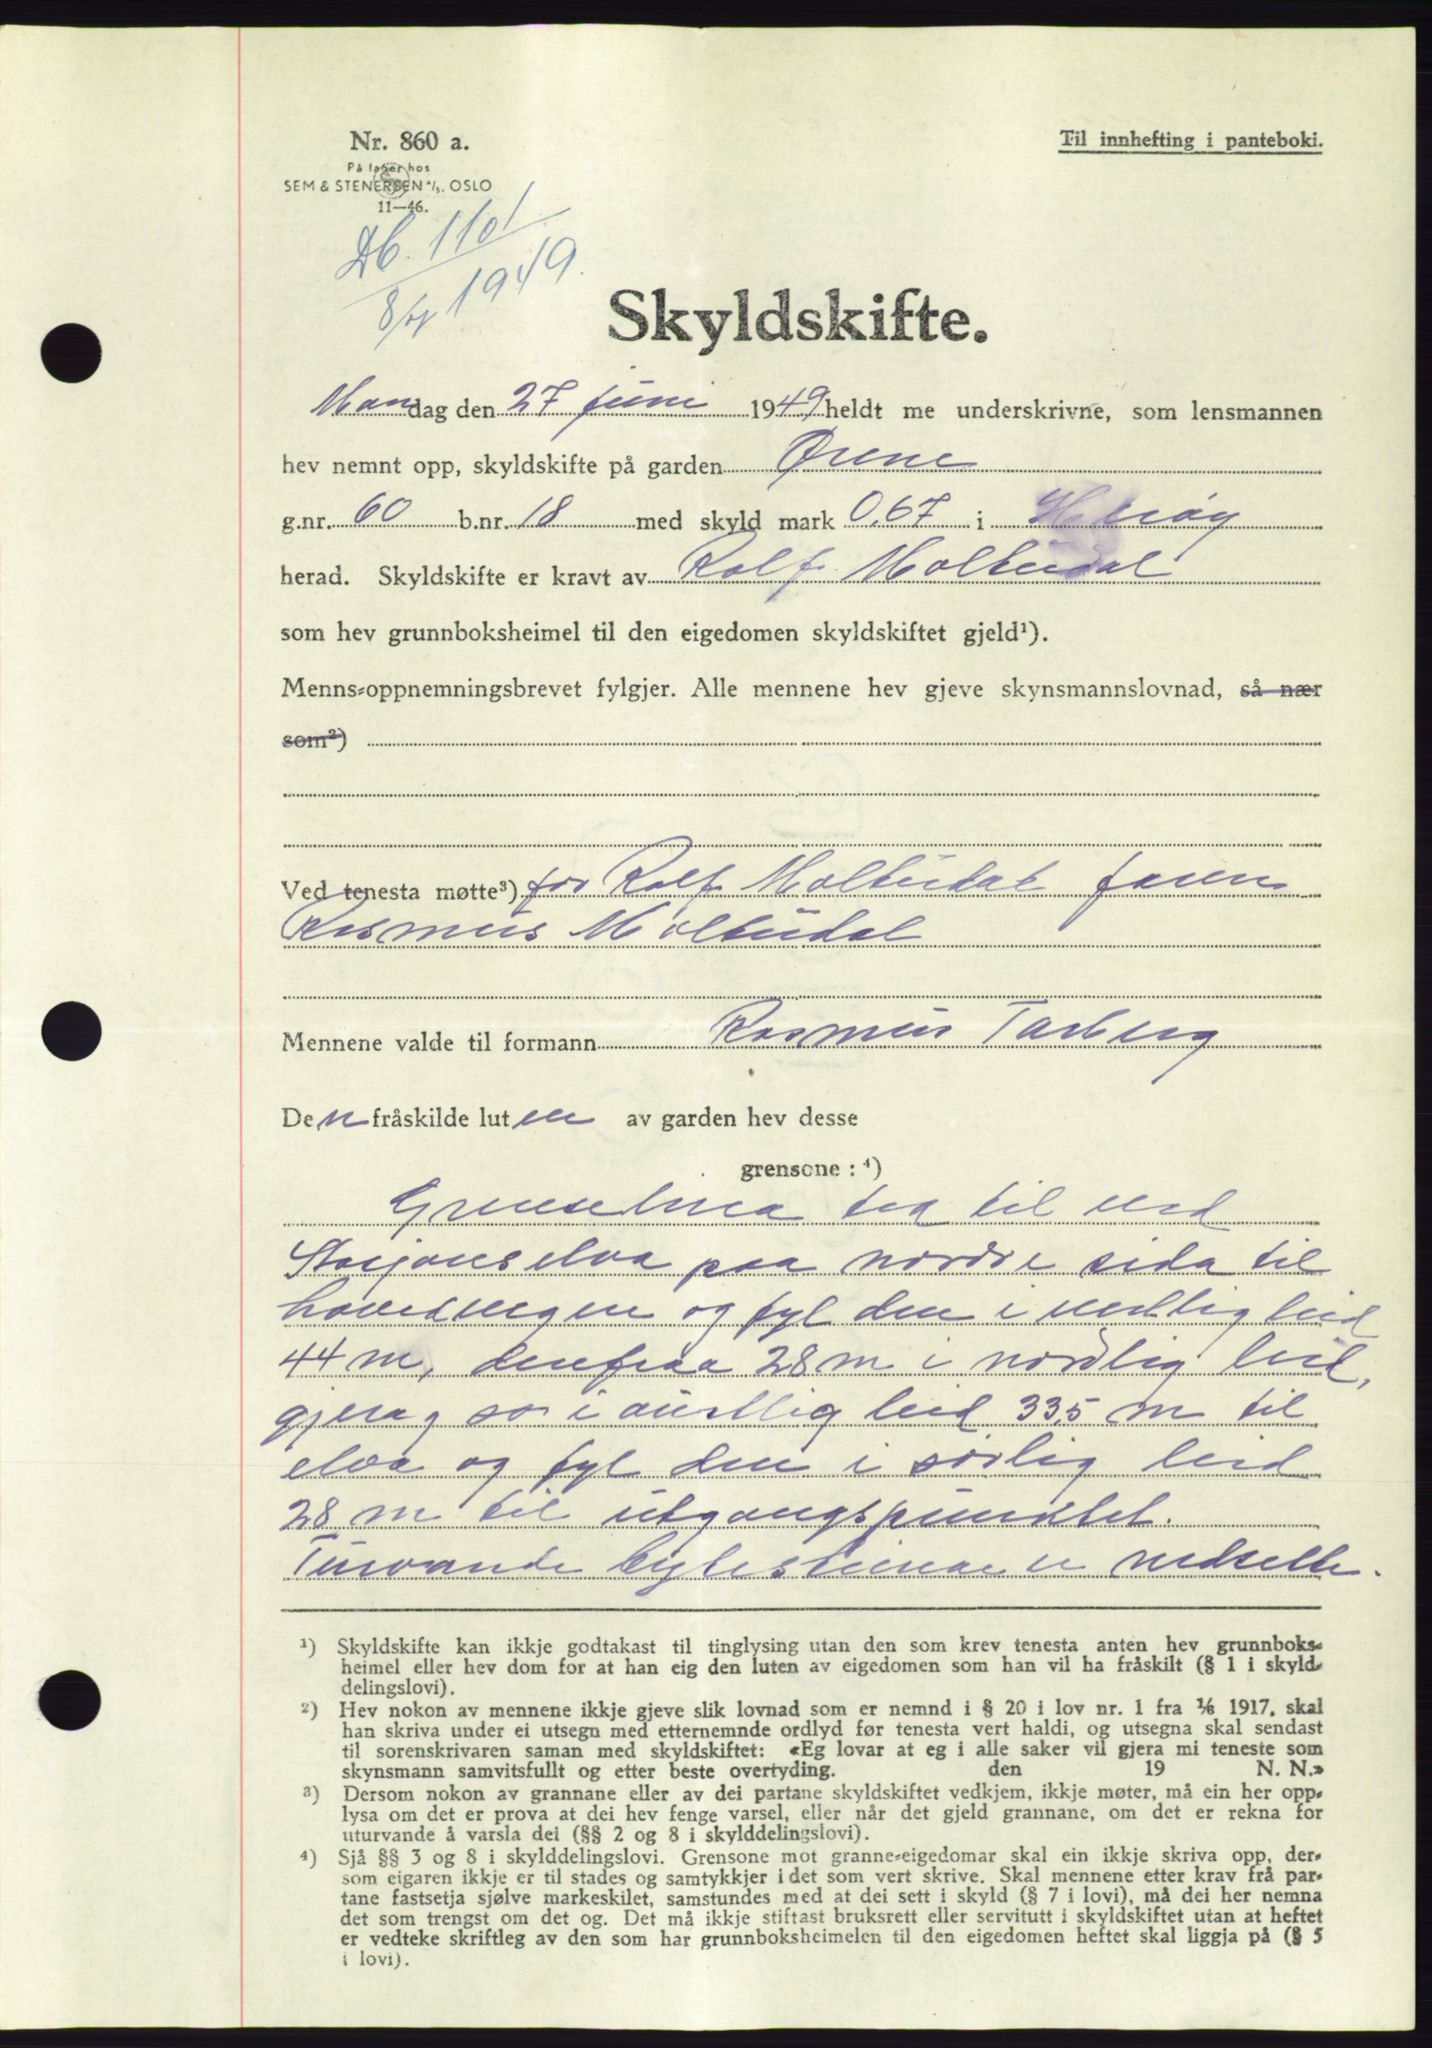 Nr. 860 a.
Til innhefting i panteboki.
På lager hos
SEM & STENERSEN A/S, OSLO
11—46.
Db. 1101
8/7 1949.
Skyldskifte.
Mandag den 27 juni 1949 heldt me underskrivne, som lensmannen
hev nemnt opp, skyldskifte på garden Ørene
g.nr. 60 b.nr. 18 med skyld mark 0,67 i Herøy
herad. Skyldskifte er kravt av Rolf Moltudal
som hev grunnboksheimel til den eigedomen skyldskiftet gjeld¹).
Menns-oppnemningsbrevet fylgjer. Alle mennene hev gjeve skynsmannslovnad, så nær
som²)
Ved tenesta møtte³) for Rolf Moltudal faren
Rasmus Moltudal
Mennene valde til formann Rasmus Tarberg
Den fråskilde luten av garden hev desse
grensone : ⁴)
Grenselina tek til ved
Storjonselva paa nordre sida til
hovedvegen og fyl den i vestlig leid
44 m, derfraa 28 m i nordlig leid,
so i austlig leid 33,5 m til
elva og fyl den i sørlig leid
28 m til utgangspunktet.
Turvande bytesteinar er nedsette.
¹) Skyldskifte kan ikkje godtakast til tinglysing utan den som krev tenesta anten hev grunnboks-
heimel eller hev dom for at han eig den luten av eigedomen som han vil ha fråskilt (§ 1 i skyld-
delingslovi).
²) Hev nokon av mennene ikkje gjeve slik lovnad som er nemnd i § 20 i lov nr. 1 fra 1/6 1917, skal
han skriva under ei utsegn med etternemnde ordlyd før tenesta vert haldi, og utsegna skal sendast
til sorenskrivaren saman med skyldskiftet: «Eg lovar at eg i alle saker vil gjera mi teneste som
skynsmann samvitsfullt og etter beste overtyding. den 19 N. N.»
³) Dersom nokon av grannane eller av dei partane skyldskiftet vedkjem, ikkje møter, må ein her opp-
lysa om det er prova at dei hev fenge varsel, eller når det gjeld grannane, om det er rekna for
uturvande å varsla dei (§§ 2 og 8 i skylddelingslovi).
⁴) Sjå §§ 3 og 8 i skylddelingslovi. Grensone mot granne-eigedomar skal ein ikkje skriva opp, der-
som eigaren ikkje er til stades og samtykkjer i det som vert skrive. Skal mennene etter krav frå par-
tane fastsetja sjølve markeskilet, samstundes med at dei sett i skyld (§ 7 i lovi), må dei her nemna
det som trengst om det og. Det må ikkje stiftast bruksrett eller servitutt i skyldskiftet utan at heftet
er vedteke skriftleg av den som har grunnboksheimelen til den eigedomen heftet skal liggja på (§ 5
i lovi).